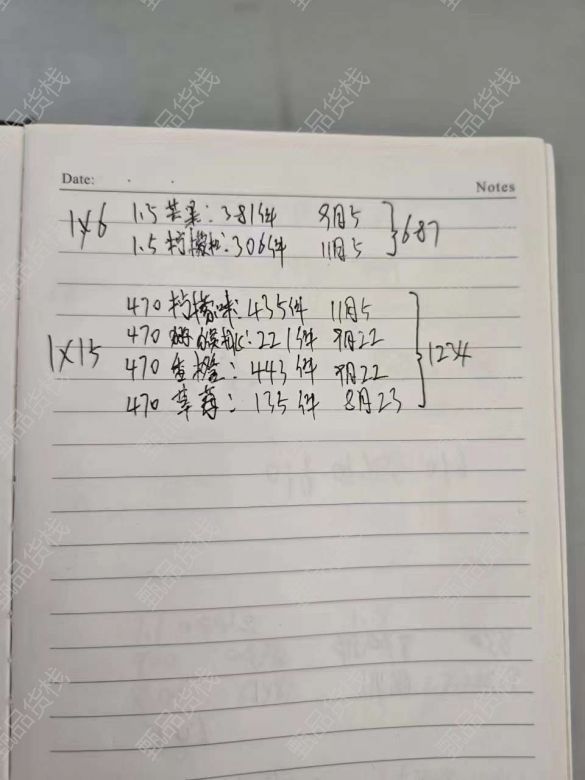 Date:
Notes
1X6
1.5芒果:381件 8月5
1.5柠檬:306件 11月5
687
1X15
470柠檬味:435件 11月5
470 :221件 9月22
470 橙:443件 9月22
470草莓:135件 8月23
1234
甄品货栈